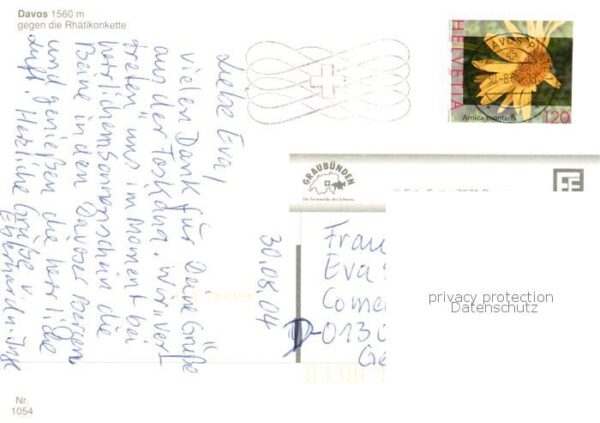 Davos 1560 m
gegen die Rhätikonkette
Liebe Eva,
vielen Dank für Deine Grüße
aus der Toskana. Wir "ver
treten" uns im Moment bei
herrlichem Sonnenschein die
Beine in den Davoser Bergen
und genießen die herrliche
Luft. Herzliche Grüße v.
Eberhard u. Inge
30.08.04
HELVETIA
Arnica montana
120
GRAUBÜNDEN
Die Ferienecke der Schweiz
Frau
Eva
D-013
privacy protection
Datenschutz
Nr.
1054